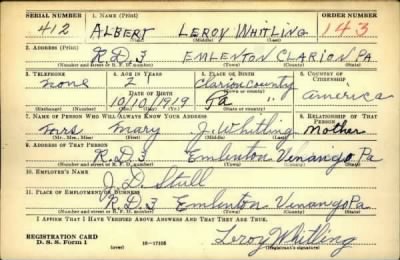 SERIAL NUMBER 1. NAME (Print) ORDER NUMBER
412 ALBERT LEROY WHITLING 143
(First) (Middle) (Last)
2. ADDRESS (Print)
R.D.3 EMLENTON CLARION PA
(Number and street or R. F. D. number) (Town) (County) (State)
3. TELEPHONE 4. AGE IN YEARS 5. PLACE OF BIRTH 6. COUNTRY OF CITIZENSHIP
none Clarion County
DATE OF BIRTH (Town or county)
10/10/1919 Pa " America
(Mo.) (Day) (Yr.) (State or country)
7. NAME OF PERSON WHO WILL ALWAYS KNOW YOUR ADDRESS 8. RELATIONSHIP OF THAT PERSON
Mrs Mary J. Whitling Mother
(Mr., Mrs., Miss) (First) (Middle) (Last)
9. ADDRESS OF THAT PERSON
R.D.3 Emlenton Venango Pa
(Number and street or R. F. D. number) (Town) (County) (State)
10. EMPLOYER'S NAME
J. D. Stull
11. PLACE OF EMPLOYMENT OR BUSINESS
R.D.3 Emlenton Venango Pa
(Number and street or R. F. D. number) (Town) (County) (State)
I AFFIRM THAT I HAVE VERIFIED ABOVE ANSWERS AND THAT THEY ARE TRUE.
REGISTRATION CARD
D. S. S. Form 1 (over) 16-17105 Leroy Whitling
(Registrant's signature)